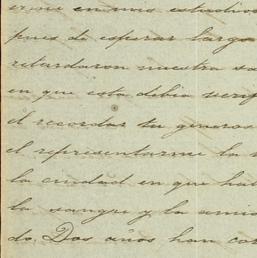 en mis estudios
pues de esperar larga
retardaron nuestra sa
en que esta debia verif
el recordar tu generos
el representarme la
la ciudad en que hab
la sangre y la amis
do. Dos años han cor